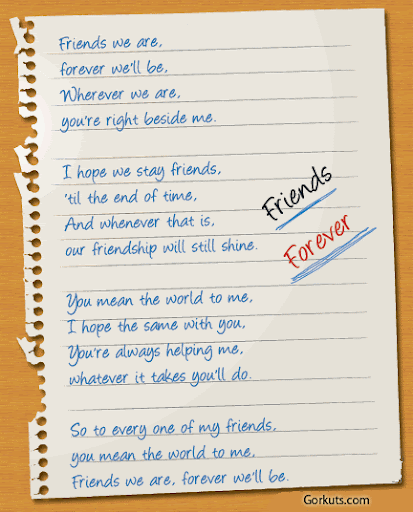 Friends we are,
forever we'll be,
Wherever we are,
you're right beside me.
I hope we stay friends,
'til the end of time,
And whenever that is,
our friendship will still shine.
Friends
Forever
You mean the world to me,
I hope the same with you,
You're always helping me,
whatever it takes you'll do.
So to every one of my friends,
you mean the world to me,
Friends we are, forever we'll be.
Gorkuts.com